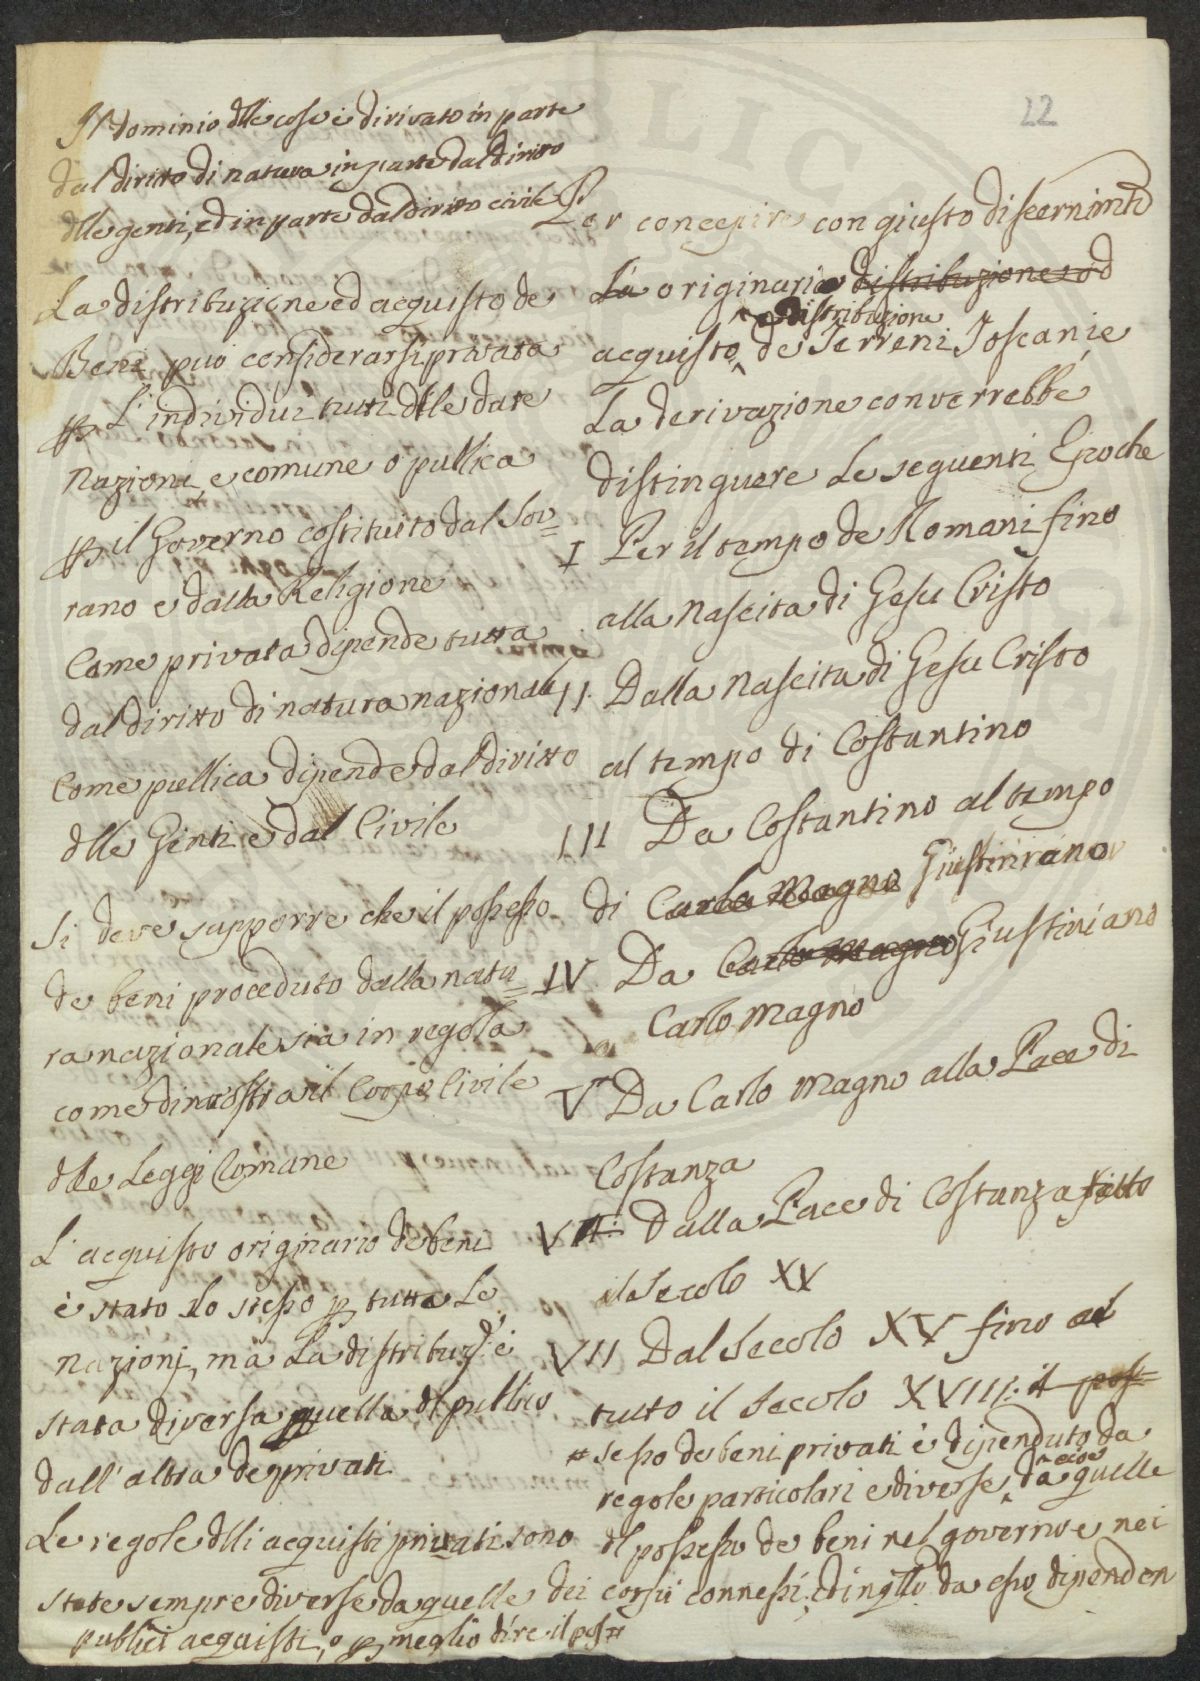 22
Il dominio dlle cose è dirivato in parte
dal diritto di natura in parte dal diritto
dlle genti, ed in parte dal diritto civile
La distribuzione ed acquisto de
Beni può considerarsi privata
p L'individui tutti dlle date
nazioni, e comune o pullica
p il Governo costituito dal Sov=
rano e dalla Religione
Come privata dipende tutta
dal diritto di natura nazionale
Come pullica dipende dal diritto
dlle Genti e dal Civile
Si deve supporre che il possesso
de beni proceduto dalla natu=
ra nazionale sia in regola
come dimostra il Corpo Civile
dlle Leggi Romane
L'acquisto originario de beni
è stato lo stesso p tutte Le
nazioni, ma La distribuze è
stata diversa quella dl publico
dall'altra de privati
Le regole dlli acquisti privati sono
state sempre diverse da quelle dei
publici acquisti, o p meglio dire il pos#
Per concepire con giusto discernimto
La originaria distribuzione ed
e distribuzione
acquisto de Terreni Toscani e
La derivazione converrebbe
distinguere Le seguenti Epoche
I Per il tempo de Romani fino
alla Nascita di Gesu Cristo
II. Dalla Nascita di Gesu Cristo
al tempo di Costantino
III Da Costantino al tempo
di Carlo Magno Giustiniano
IV Da Carlo Magno Giustiniano
a Carlo Magno
V Da Carlo Magno alla Pace di
Costanza
VI Dalla Pace di Costanza
il Secolo XV
VII Dal Secolo XV fino al
tutto il Secolo XVIII. il pos=
# sesso de beni privati è dipenduto da
regole particolari e diverse, da quelle
cioè
dl possesso de beni nel governo e nei
corpi connessi, ed in qllo da esso dipenden